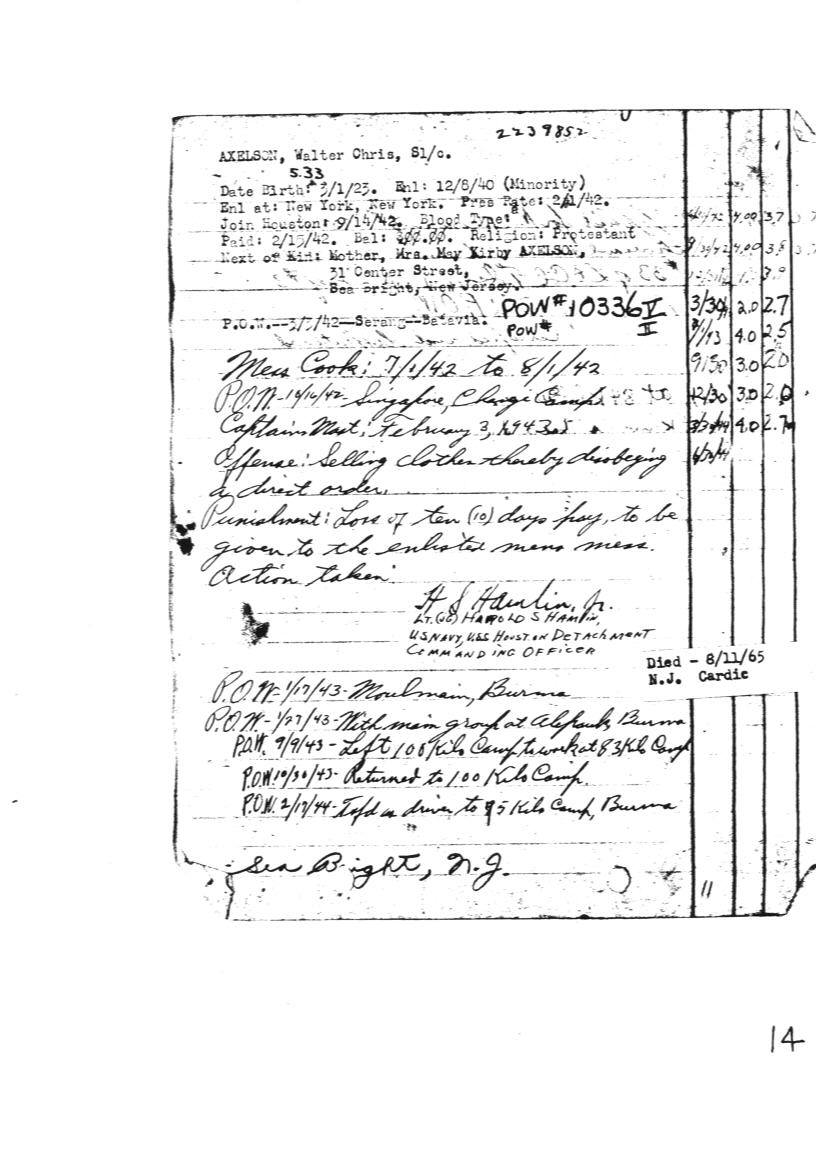 2239852
AXELSON, Walter Chris, S1/c.
5.33
Date Birth: 3/1/23. Enl: 12/8/40 (Minority)
Enl at: New York, New York. Pres Rate: 2/1/42.
Join Houston: 9/14/42. Blood Type:
Paid: 2/15/42. Bal: Religion: Protestant
Next of Kin: Mother, Mrs. May Kirby AXELSON,
31 Center Street,
Sea Bright, New Jersey.
POW# 10336 V
P.O.W.--3/3/42--Serang--Batavia.
POW# II
3/30/ 2.0 2.7
4.0 2.5
Mess Cook: 7/1/42 to 8/1/42
9/30 3.0 2.0
P.O.W.- Singapore, Changi Camp
12/30 3.0 2.0
Captains Mast: February 3, 1943
4.0 2.7
Offense: Selling clothes thereby disobeying
a direct order.
Punishment: Loss of ten (10) days pay, to be
given to the enlisted mens mess.
Action taken:
H S Hamlin, Jr.
LT. (JG) HAROLD S HAMLIN,
US NAVY, USS HOUSTON DETACHMENT
COMMANDING OFFICER
Died - 8/11/65
N.J. Cardic
P.O.W- 1/17/43- Moulmain, Burma
P.O.W- 1/27/43- With main group at Burma
P.O.W. 9/9/43 - Left 100 Kilo Camp to work at 83 Kilo Camp
P.O.W. 10/30/43- Returned to 100 Kilo Camp.
P.O.W. 2/17/44- Tsfd as driver to 95 Kilo Camp, Burma
Sea Bright, N.J.
11
14